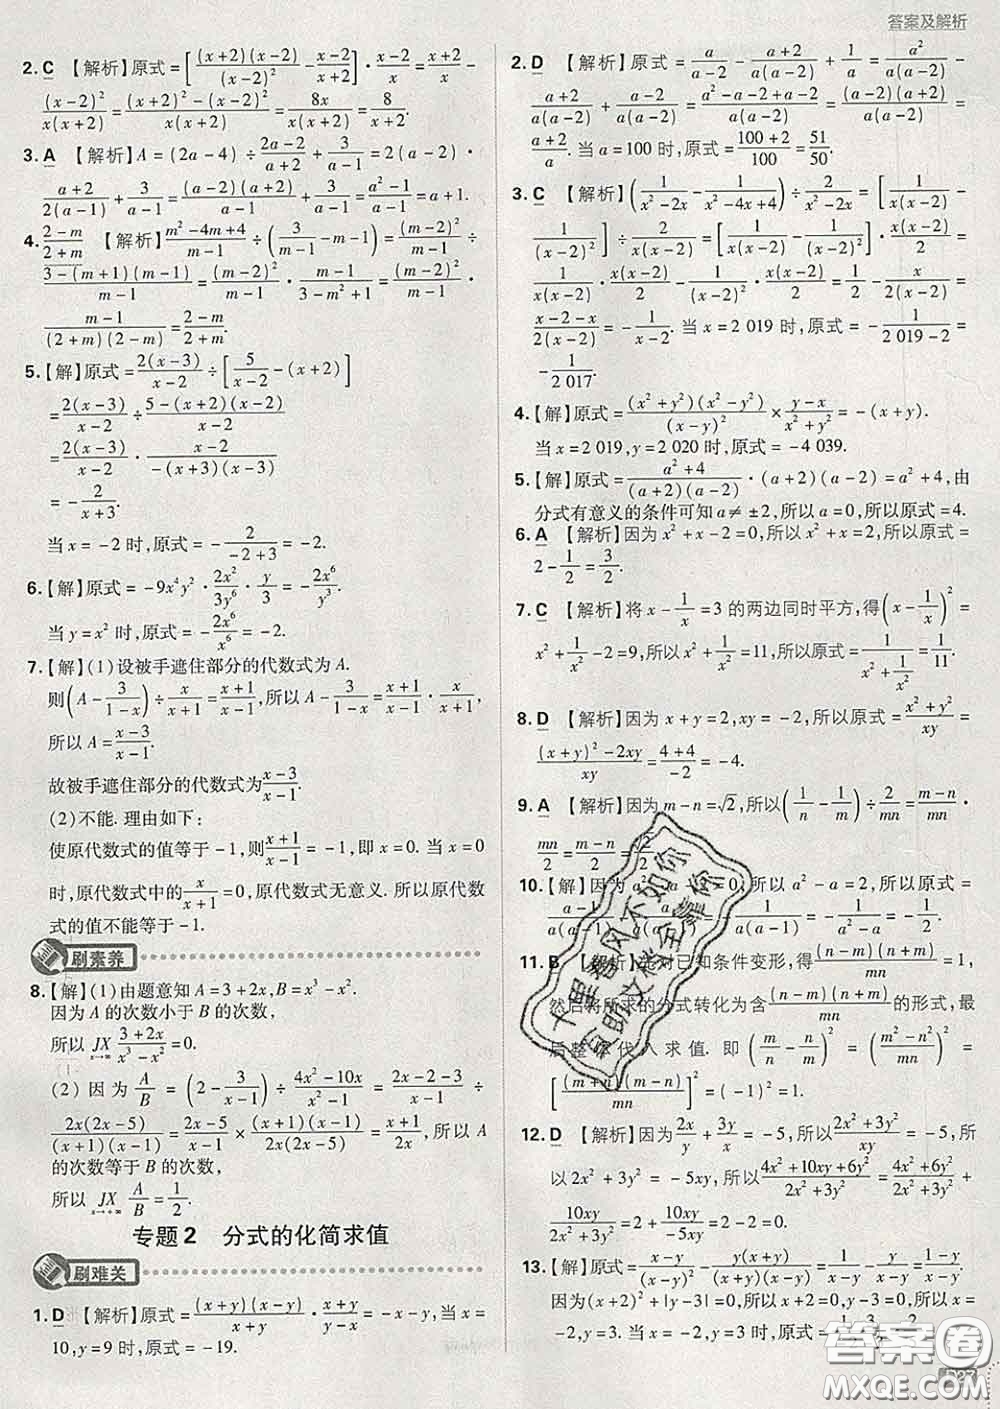 答案及解析
2. C 【解析】原式=[(x+2)(x-2)/(x-2)² - (x-2)/(x+2)]·(x-2)/x=(x+2)/x-
(x-2)²/x(x+2)=((x+2)²-(x-2)²)/x(x+2)=8x/x(x+2)=8/(x+2).
3. A 【解析】A=(2a-4)÷(2a-2)/(a+2)+3/(a-1)=2(a-2)·
(a+2)/2(a-1)+3/(a-1)=(a-2)(a+2)/(a-1)+3/(a-1)=(a²-1)/(a-1)=a+1.
4. (2-m)/(2+m) 【解析】(m²-4m+4)/(m-1)÷(3/(m-1)-m-1)=(m-2)²/(m-1)÷
(3-(m+1)(m-1))/(m-1)=(m-2)²/(m-1)·(m-1)/(3-m²+1)=(m-2)²/(m-1)·
(m-1)/(2+m)(2-m)=(2-m)/(2+m).
5.【解】原式=2(x-3)/(x-2)÷[5/(x-2)-(x+2)]
=2(x-3)/(x-2)÷(5-(x+2)(x-2))/(x-2)
=2(x-3)/(x-2)·(x-2)/-(x+3)(x-3)
=-2/(x+3).
当x=-2时,原式=-2/(-2+3)=-2.
6.【解】原式=-9x⁴y²·2x²/3y⁶·y/3=-2x⁶/y³.
当y=x²时,原式=-2x⁶/x⁶=-2.
7.【解】(1)设被手遮住部分的代数式为A.
则(A-3/(1-x))÷x/(x+1)=(x+1)/(x-1),所以A-3/(1-x)=(x+1)/(x-1)·x/(x+1),
所以A=(x-3)/(x-1).
故被手遮住部分的代数式为(x-3)/(x-1).
(2)不能.理由如下:
使原代数式的值等于-1,则(x+1)/(x-1)=-1,即x=0.当x=0
时,原代数式中的x/(x+1)=0,原代数式无意义.所以原代数
式的值不能等于-1.
刷素养
8.【解】(1)由题意知A=3+2x,B=x³-x².
因为A的次数小于B的次数,
所以 JX x→∞ (3+2x)/(x³-x²)=0.
(2)因为A/B=(2-3/(x-1))÷(4x²-10x)/(x²-1)=(2x-2-3)/(x-1)÷
2x(2x-5)/(x+1)(x-1)=(2x-5)/(x-1)×(x+1)(x-1)/2x(2x-5)=(x+1)/2x,所以A
的次数等于B的次数,
所以 JX x→∞ A/B=1/2.
专题2 分式的化简求值
刷难关
1. D 【解析】原式=(x+y)(x-y)/(x+y)·(x+y)/(-x+y)=-x-y,当x=
10,y=9时,原式=-19.
2. D 【解析】原式=a/(a-2)-(a+2)/a(a-2)+1/a=a²/a(a-2)-
(a+2)/a(a-2)+(a-2)/a(a-2)=(a²-a-2+a-2)/a(a-2)=(a-2)(a+2)/a(a-2)=
(a+2)/a.当a=100时,原式=(100+2)/100=51/50.
3. C 【解析】(1/(x²-2x)-1/(x²-4x+4))÷2/(x²-2x)=[1/x(x-2)-
1/(x-2)²]÷2/x(x-2)=[1/x(x-2)-1/(x-2)²]·x(x-2)/2=
1/x(x-2)·x(x-2)/2-1/(x-2)²·x(x-2)/2=1/2-x/2(x-2)=
(x-2-x)/2(x-2)=-1/(x-2).当x=2 019时,原式=-1/(2 019-2)=
-1/2 017.
4.【解】原式=(x²+y²)(x²-y²)/(x-y)²×(y-x)/(x²+y²)=-(x+y).
当x=2 019,y=2 020时,原式=-4 039.
5.【解】原式=(a²+4)/(a+2)(a-2)·(a+2)(a-2)=a²+4,由
分式有意义的条件可知a≠±2,所以a=0,所以原式=4.
6. A 【解析】因为x²+x-2=0,所以x²+x=2,所以原式=
2-1/2=3/2.
7. C 【解析】将x-1/x=3的两边同时平方,得(x-1/x)²=
x²+1/x²-2=9,所以x²+1/x²=11,所以原式=1/(x²+1/x²)=1/11.
8. D 【解析】因为x+y=2,xy=-2,所以原式=(x²+y²)/xy=
((x+y)²-2xy)/xy=(4+4)/-2=-4.
9. A 【解析】因为m-n=√2,所以(1/n-1/m)÷2/mn=(m-n)/mn·
mn/2=(m-n)/2=√2/2.
10.【解】因为 =0,所以a²-a=2,所以原式=
(a-1)/ =-1/(a²-a)=-1/2.
11. B 【解析】先对已知条件变形,得(n-m)(n+m)/mn=1,
然后将所求的分式转化为含(n-m)(n+m)/mn的形式,最
后整体代入求值.即(m/n-n/m)²=((m²-n²)/mn)²=
[(m+n)(m-n)/mn]²=(-1)²=1.
12. D 【解析】因为2x/y+3y/x=-5,所以(2x²+3y²)/xy=-5,所
以2x²+3y²=-5xy,所以(4x²+10xy+6y²)/(2x²+3y²)=(4x²+6y²)/(2x²+3y²)+
10xy/(2x²+3y²)=2+10xy/-5xy=2-2=0.
13.【解】原式=(x-y)/x÷ -y(x+y)/(x+y)(x-y)=(x-y)/x-y/(x-y).
因为(x+2)²+|y-3|=0,所以x+2=0,y-3=0,所以x=
-2,y=3.当x=-2,y=3时,原式=
十里春风不如你
互助文档全靠你
答案圈
MXQE.COM
D27